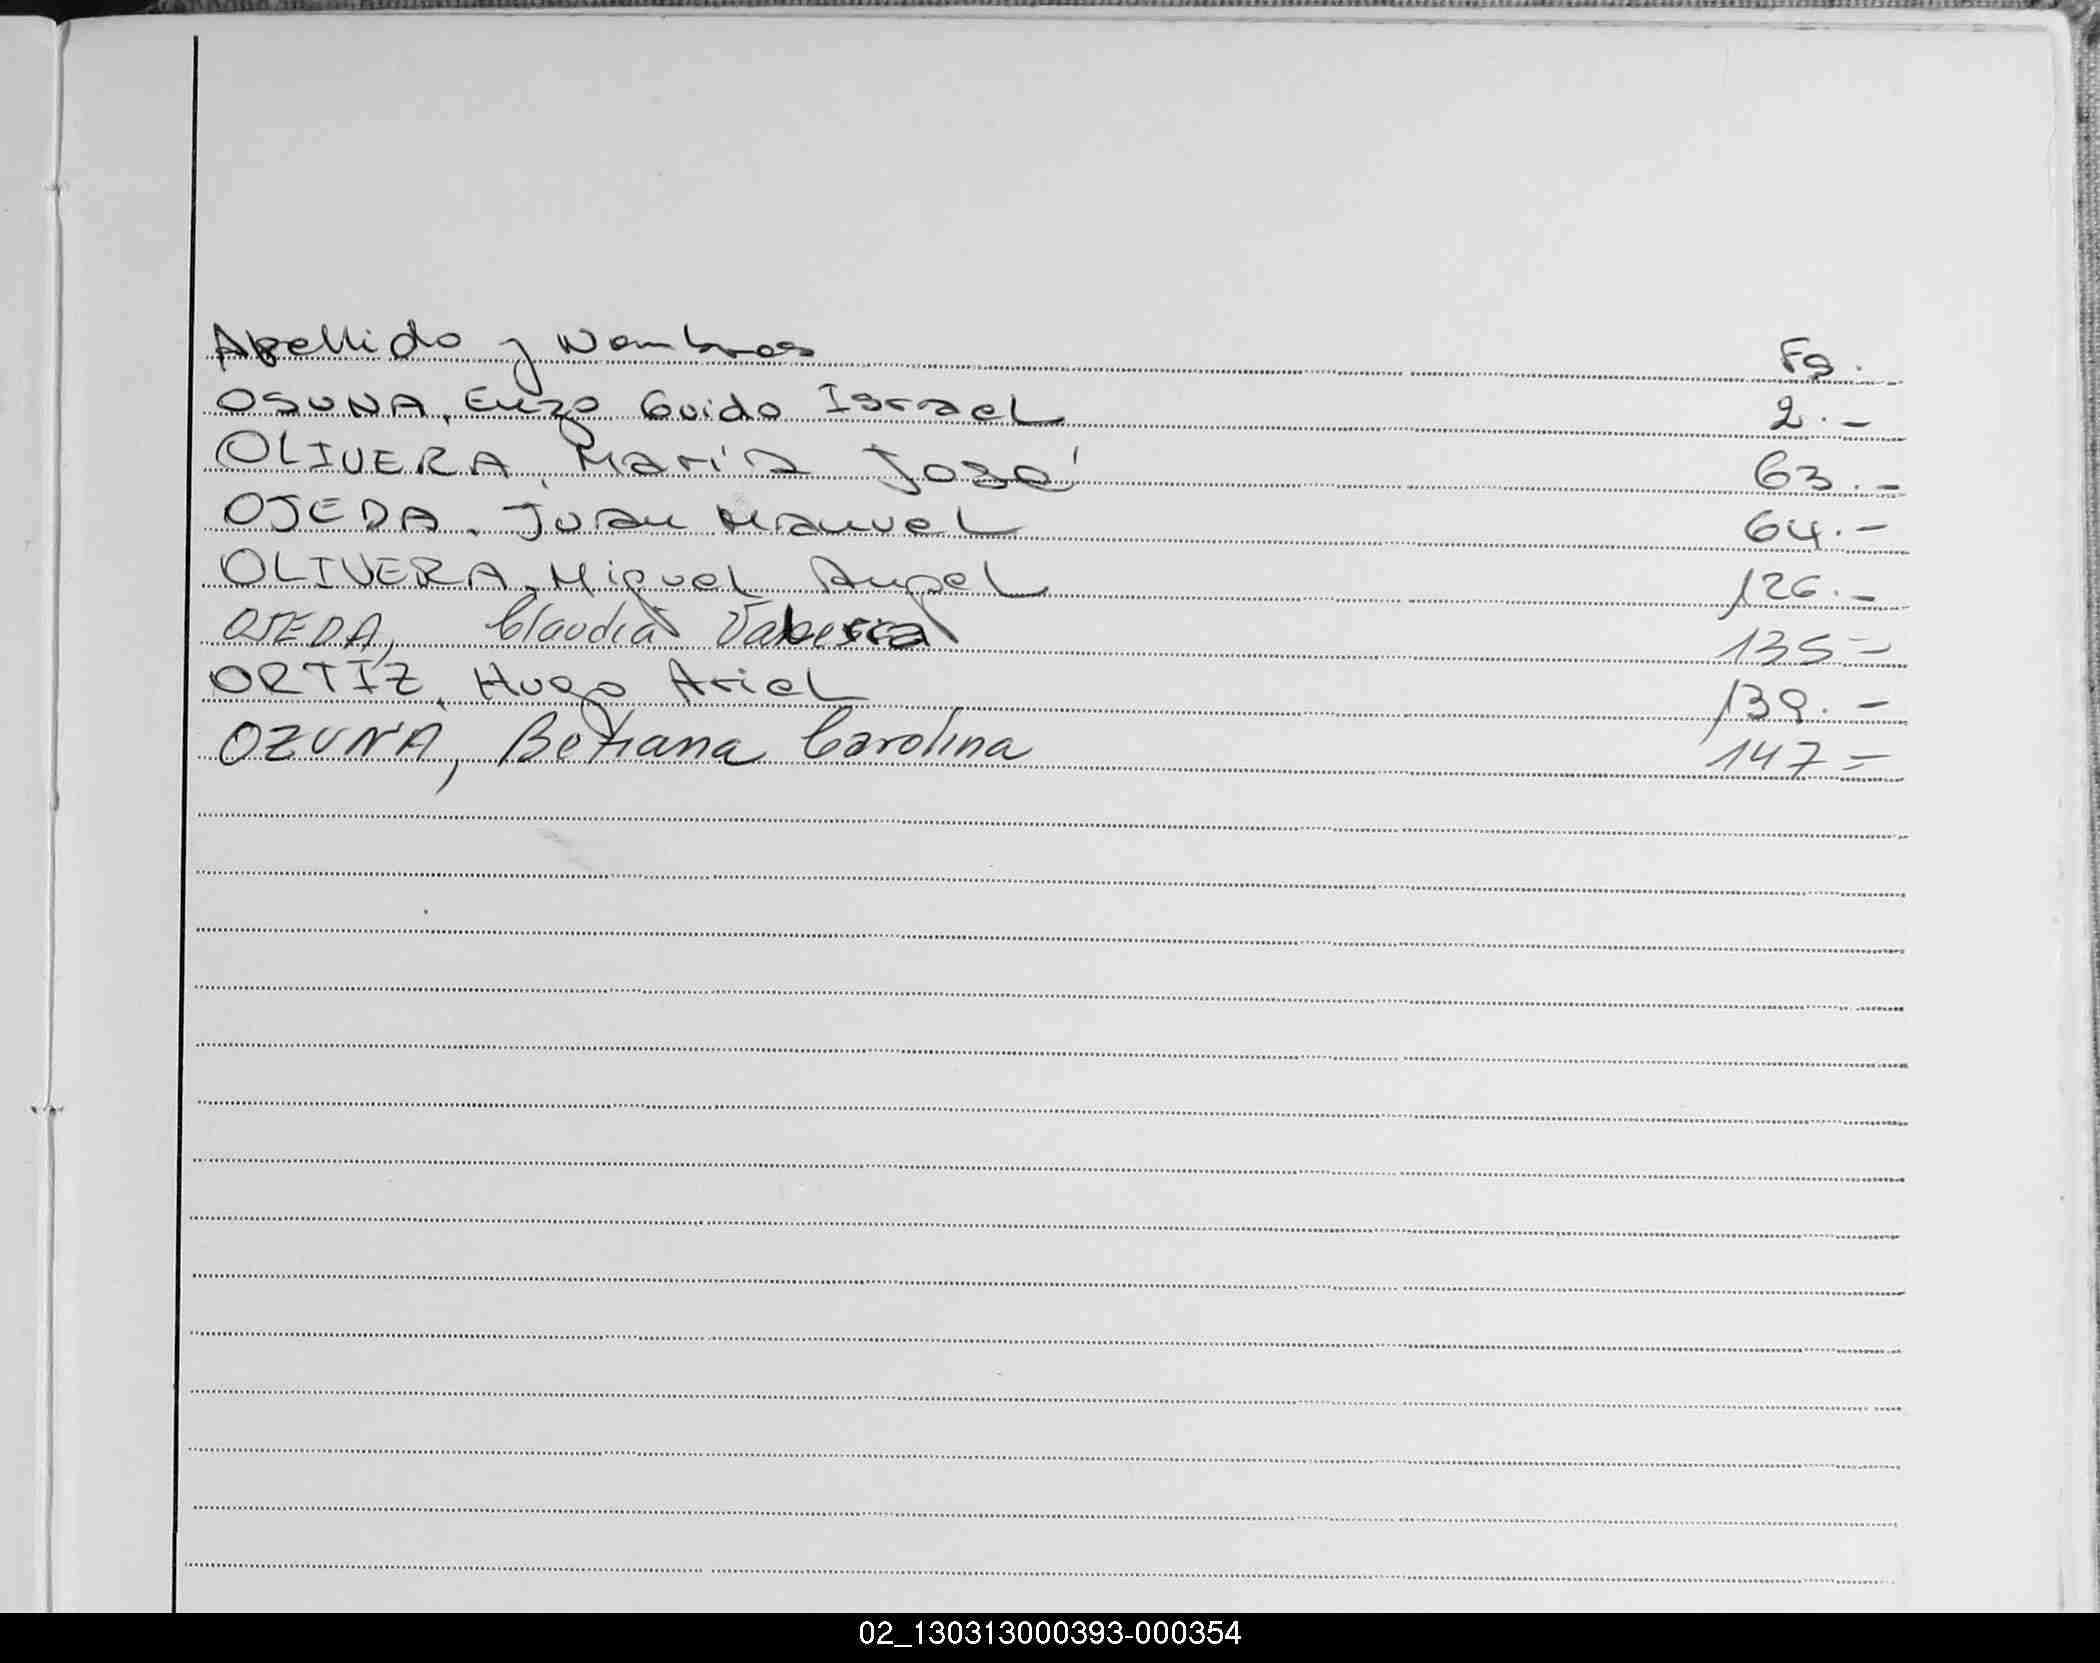 Apellido y Nombres Fs.
OSUNA, Enzo Guido Israel 2.-
OLIVERA, María José 63.-
OJEDA, Juan Manuel 64.-
OLIVERA, Miguel Angel 126.-
OJEDA, Claudia 135=
ORTIZ, Hugo Ariel 139.-
OZUNA, Betiana Carolina 147=
02_130313000393-000354